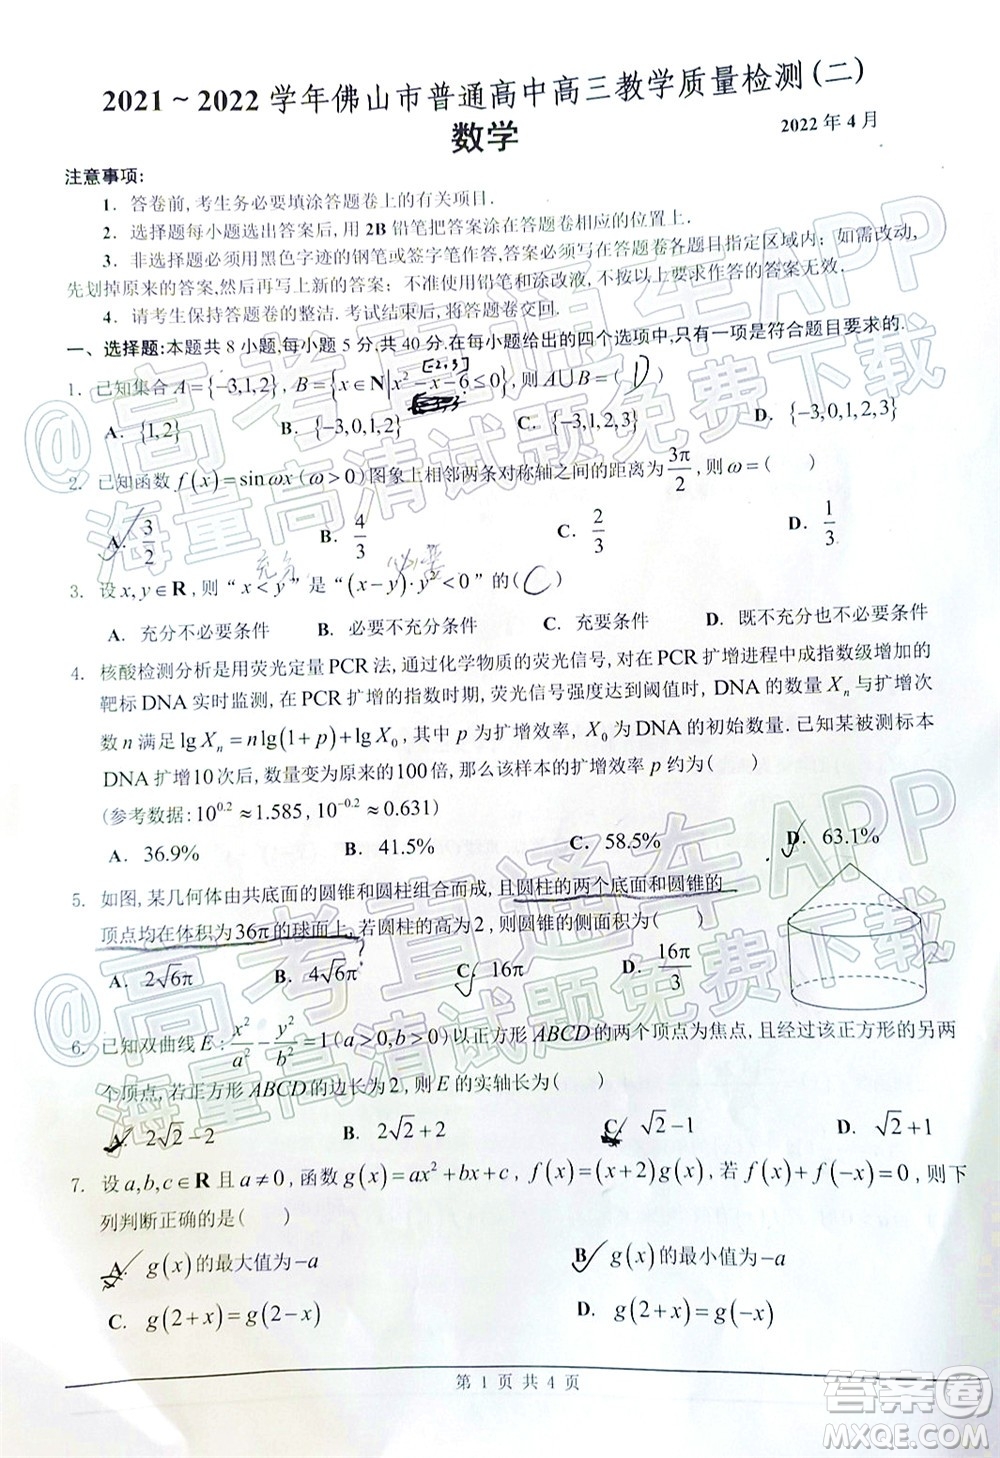 2021～2022 学年佛山市普通高中高三教学质量检测(二)
数学
2022 年 4 月
注意事项:
1. 答卷前, 考生务必要填涂答题卷上的有关项目.
2. 选择题每小题选出答案后, 用 2B 铅笔把答案涂在答题卷相应的位置上.
3. 非选择题必须用黑色字迹的钢笔或签字笔作答, 答案必须写在答题卷各题目指定区域内; 如需改动,
先划掉原来的答案,然后再写上新的答案; 不准使用铅笔和涂改液, 不按以上要求作答的答案无效.
4. 请考生保持答题卷的整洁. 考试结束后, 将答题卷交回.
一、选择题:本题共 8 小题,每小题 5 分,共 40 分.在每小题给出的四个选项中,只有一项是符合题目要求的.
[-2,3]
1. 已知集合 A={-3,1,2}, B={x∈N|x²-x-6≤0}, 则 A∪B=( D )
A. {1,2} B. {-3,0,1,2} C. {-3,1,2,3} D. {-3,0,1,2,3}
2. 已知函数 f(x)=sinωx (ω>0) 图象上相邻两条对称轴之间的距离为 3π/2, 则 ω=( )
A. 3/2 B. 4/3 C. 2/3 D. 1/3
充分 必要
3. 设 x,y∈R, 则 “x<y” 是 “(x-y)·y²<0” 的( C )
A. 充分不必要条件 B. 必要不充分条件 C. 充要条件 D. 既不充分也不必要条件
4. 核酸检测分析是用荧光定量 PCR 法, 通过化学物质的荧光信号, 对在 PCR 扩增进程中成指数级增加的
靶标 DNA 实时监测, 在 PCR 扩增的指数时期, 荧光信号强度达到阈值时, DNA 的数量 Xₙ 与扩增次
数 n 满足 lg Xₙ=nlg(1+p)+lg X₀, 其中 p 为扩增效率, X₀ 为 DNA 的初始数量. 已知某被测标本
DNA 扩增10 次后, 数量变为原来的100 倍, 那么该样本的扩增效率 p 约为( )
(参考数据: 10^0.2≈1.585, 10^-0.2≈0.631)
A. 36.9% B. 41.5% C. 58.5% D. 63.1%
5. 如图, 某几何体由共底面的圆锥和圆柱组合而成, 且圆柱的两个底面和圆锥的
顶点均在体积为36π的球面上, 若圆柱的高为2, 则圆锥的侧面积为( )
A. 2√6π B. 4√6π C. 16π D. 16π/3
2
6. 已知双曲线 E: x²/a²-y²/b²=1(a>0,b>0)以正方形 ABCD 的两个顶点为焦点, 且经过该正方形的另两
个顶点, 若正方形 ABCD 的边长为 2, 则 E 的实轴长为( )
A. 2√2-2 B. 2√2+2 C. √2-1 D. √2+1
7. 设 a,b,c∈R 且 a≠0, 函数 g(x)=ax²+bx+c, f(x)=(x+2)g(x), 若 f(x)+f(-x)=0, 则下
列判断正确的是( )
A. g(x) 的最大值为 -a B. g(x) 的最小值为 -a
C. g(2+x)=g(2-x) D. g(2+x)=g(-x)
第 1 页 共 4 页
@高考直通车APP
海量高清试题免费下载
@高考直通车APP
海量高清试题免费下载
答案圈
MXQE.COM